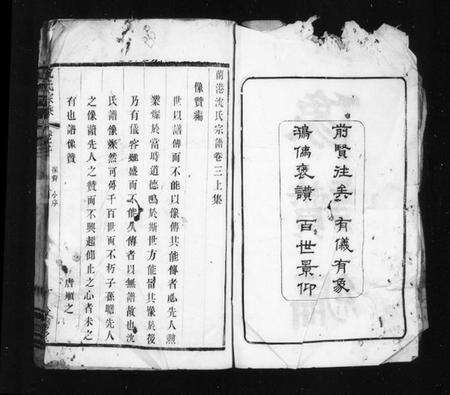 前賢往矣 有儀有象
鴻儒褒讚 百世景仰
蘭港沈氏宗譜卷三上集
像贊編
世以譜傳而不能以像傳其能傳者必先人勲
業爍於當時道德鳴於斯世方能留其像於後
乃有儀容雖盛而不能久傳者以無譜故也沈
氏譜像燦然可傳千百世而不朽子孫瞻先人
之像讀先人之贊而不興起仰止之心者未之
有也譜像贊
唐順之